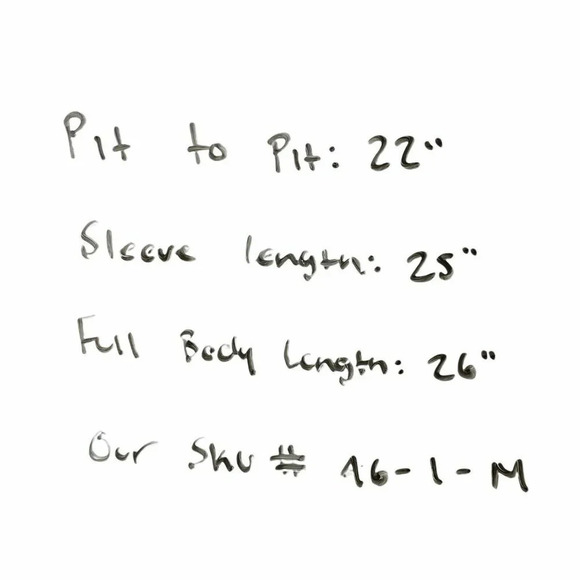 Pit to Pit: 22"
Sleeve length: 25"
Full Body Length: 26"
Our Sku # 16-1-M